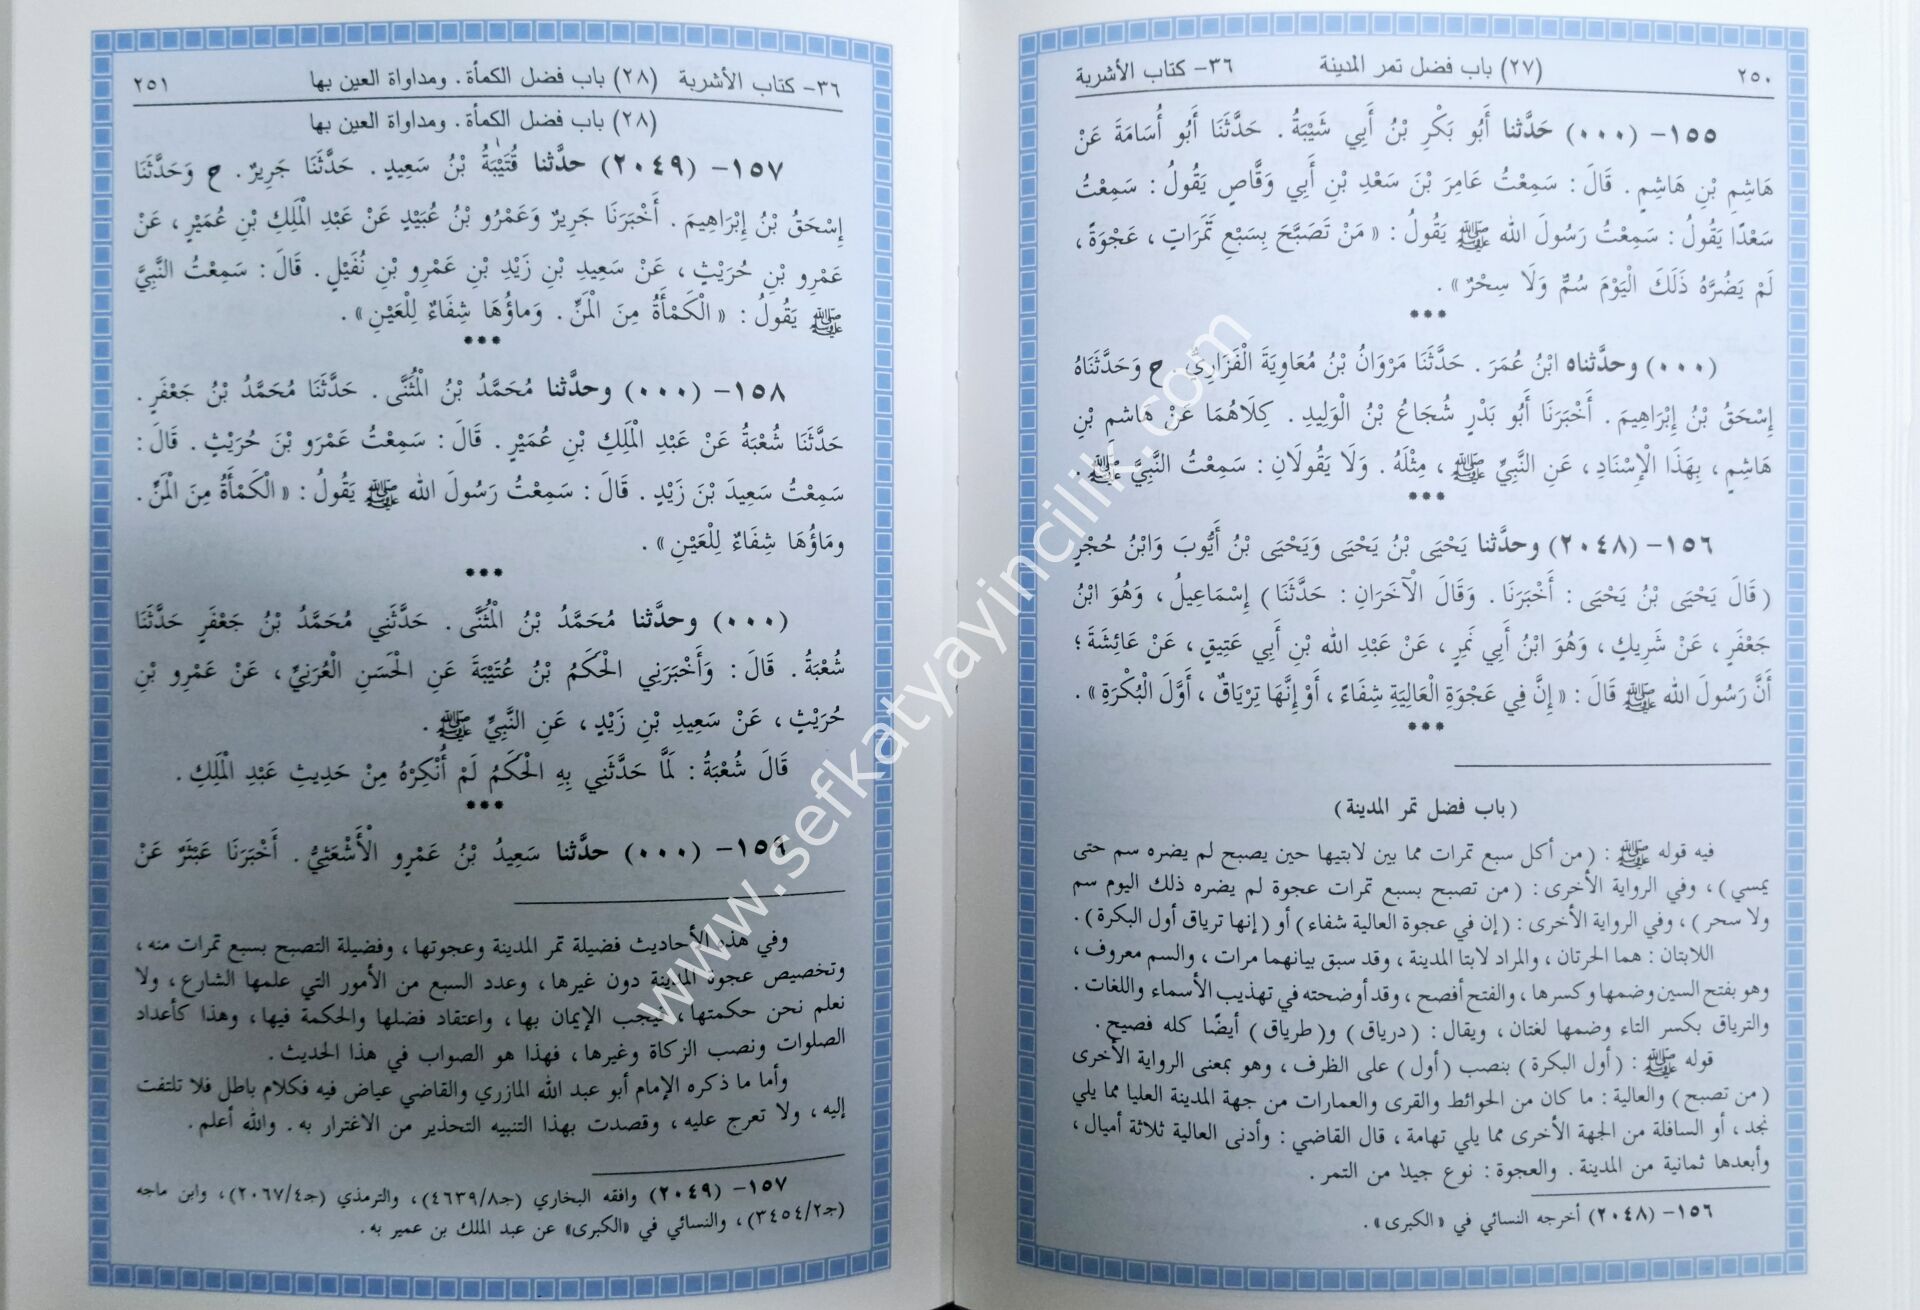 ٢٥٠ (٢٧) باب فضل تمر المدينة ٣٦- كتاب الأشربة
١٥٥- (٠٠٠) حَدَّثنا أَبُو بَكْرِ بْنُ أَبِي شَيْبَةُ . حَدَّثَنَا أَبُو أُسَامَةَ عَنْ
هَاشِمِ بْنِ هَاشِمٍ . قَالَ : سَمِعْتُ عَامِرَ بْنَ سَعْدِ بْنِ أَبِي وَقَّاصٍ يَقُولُ : سَمِعْتُ
سَعْدًا يَقُولُ : سَمِعْتُ رَسُولَ الله ﷺ يَقُولُ : « مَنْ تَصَبَّحَ بِسَبْعِ تَمَرَاتٍ ، عَجْوَةً ،
لَمْ يَضُرَّهُ ذَلَكَ الْيَوْمَ سُمٌّ وَلَا سِحْرٌ » .
***
(٠٠٠) وحدَّثناه ابْنُ عُمَرَ . حَدَّثَنَا مَرْوَانُ بْنُ مُعَاوِيَةَ الْفَزَارِيُّ . ح وَحَدَّثَنَاهُ
إِسْحَقُ بْنُ إِبْرَاهِيمَ . أَخْبَرَنَا أَبُو بَدْرٍ شُجَاعُ بْنُ الْوَلِيدِ . كِلَاهُمَا عَنْ هَاشمِ بْنِ
هَاشِمٍ ، بِهَذَا الْإِسْنَادِ ، عَنِ النَّبِيِّ ﷺ ، مِثْلَهُ . وَلَا يَقُولَانِ : سَمِعْتُ النَّبِيَّ ﷺ .
***
١٥٦- (٢٠٤٨) وحدَّثنا يَحْيَى بْنُ يَحْيَى وَيَحْيَى بْنُ أَيُّوبَ وَابْنُ حُجْرٍ
( قَالَ يَحْيَى بْنُ يَحْيَى : أَخْبَرَنَا . وَقَالَ الْآخَرَانِ : حَدَّثَنَا ) إِسْمَاعِيلُ ، وَهُوَ ابْنُ
جَعْفَرٍ ، عَنْ شَرِيكٍ ، وَهُوَ ابْنُ أَبِي نَمِرٍ ، عَنْ عَبْدِ الله بْنِ أَبِي عَتِيقٍ ، عَنْ عَائِشَةَ ؛
أَنَّ رَسُولَ الله ﷺ قَالَ : « إِنَّ فِي عَجْوَةِ الْعَالِيَةِ شِفَاءً ، أَوْ إِنَّهَا تِرْيَاقٌ ، أَوَّلَ الْبُكْرَةِ » .
***
( باب فضل تمر المدينة )
فيه قوله ﷺ : ( من أكل سبع تمرات مما بين لابتيها حين يصبح لم يضره سم حتى
يمسي ) ، وفي الرواية الأخرى : ( من تصبح بسبع تمرات عجوة لم يضره ذلك اليوم سم
ولا سحر ) ، وفي الرواية الأخرى : ( إن في عجوة العالية شفاء ) أو ( إنها ترياق أول البكرة ) .
اللابتان : هما الحرتان ، والمراد لابتا المدينة ، وقد سبق بيانهما مرات ، والسم معروف ،
وهو بفتح السين وضمها وكسرها ، والفتح أفصح ، وقد أوضحته في تهذيب الأسماء واللغات .
والترياق بكسر التاء وضمها لغتان ، ويقال : ( درياق ) و( طرياق ) أيضًا كله فصيح .
قوله ﷺ : ( أول البكرة ) بنصب ( أول ) على الظرف ، وهو بمعنى الرواية الأخرى
( من تصبح ) والعالية : ما كان من الحوائط والقرى والعمارات من جهة المدينة العليا مما يلي
نجد ، أو السافلة من الجهة الأخرى مما يلي تهامة ، قال القاضي : وأدنى العالية ثلاثة أميال ،
وأبعدها ثمانية من المدينة . والعجوة : نوع جيد من التمر .
١٥٦- (٢٠٤٨) أخرجه النسائي في « الكبرى » .
٣٦- كتاب الأشربة (٢٨) باب فضل الكمأة . ومداواة العين بها ٢٥١
(٢٨) باب فضل الكمأة . ومداواة العين بها
١٥٧- (٢٠٤٩) حدَّثنا قُتَيْبَةُ بْنُ سَعِيدٍ . حَدَّثَنَا جَرِيرٌ . ح وَحَدَّثَنَا
إِسْحَقُ بْنُ إِبْرَاهِيمَ . أَخْبَرَنَا جَرِيرٌ وَعَمْرُو بْنُ عُبَيْدٍ عَنْ عَبْدِ الْمَلِكِ بْنِ عُمَيْرٍ ، عَنْ
عَمْرِو بْنِ حُرَيْثٍ ، عَنْ سَعِيدِ بْنِ زَيْدِ بْنِ عَمْرِو بْنِ نُفَيْلٍ . قَالَ : سَمِعْتُ النَّبِيَّ
ﷺ يَقُولُ : « الْكَمْأَةُ مِنَ الْمَنِّ . وَماؤُهَا شِفَاءٌ لِلْعَيْنِ » .
***
١٥٨- (٠٠٠) وحدَّثنا مُحَمَّدُ بْنُ الْمُثَنَّى . حَدَّثَنَا مُحَمَّدُ بْنُ جَعْفَرٍ .
حَدَّثَنَا شُعْبَةُ عَنْ عَبْدِ الْمَلِكِ بْنِ عُمَيْرٍ . قَالَ : سَمِعْتُ عَمْرَو بْنَ حُرَيْثٍ . قَالَ :
سَمِعْتُ سَعِيدَ بْنَ زَيْدٍ . قَالَ : سَمِعْتُ رَسُولَ الله ﷺ يَقُولُ : « الْكَمْأَةُ مِنَ الْمَنِّ .
ومَاؤُهَا شِفَاءٌ لِلْعَيْنِ » .
***
(٠٠٠) وحدَّثنا مُحَمَّدُ بْنُ الْمُثَنَّى . حَدَّثَنِي مُحَمَّدُ بْنُ جَعْفَرٍ حَدَّثَنَا
شُعْبَةُ . قَالَ : وَأَخْبَرَنِي الْحَكَمُ بْنُ عُتَيْبَةَ عَنِ الْحَسَنِ الْعُرَنِيِّ ، عَنْ عَمْرِو بْنِ
حُرَيْثٍ ، عَنْ سَعِيدِ بْنِ زَيْدٍ ، عَنِ النَّبِيِّ ﷺ .
قَالَ شُعْبَةُ : لَمَّا حَدَّثَنِي بِهِ الْحَكَمُ لَمْ أُنْكِرْهُ مِنْ حَدِيثِ عَبْدِ الْمَلِكِ .
***
١٥٩- (٠٠٠) حدَّثنا سَعِيدُ بْنُ عَمْرٍو الْأَشْعَثِيُّ . أَخْبَرَنَا عَبْثَرٌ عَنْ
وفي هذه الأحاديث فضيلة تمر المدينة وعجوتها ، وفضيلة التصبح بسبع تمرات منه ،
وتخصيص عجوة المدينة دون غيرها ، وعدد السبع من الأمور التي علمها الشارع ، ولا
نعلم نحن حكمتها ، فيجب الإيمان بها ، واعتقاد فضلها والحكمة فيها ، وهذا كأعداد
الصلوات ونصب الزكاة وغيرها ، فهذا هو الصواب في هذا الحديث .
وأما ما ذكره الإمام أبو عبد الله المازري والقاضي عياض فيه فكلام باطل فلا تلتفت
إليه ، ولا تعرج عليه ، وقصدت بهذا التنبيه التحذير من الاغترار به . والله أعلم .
١٥٧- (٢٠٤٩) وافقه البخاري (جـ٤٦٣٩/٨) ، والترمذي (جـ٢٠٦٧/٤) ، وابن ماجه
(جـ٣٤٥٤/٢) ، والنسائي في « الكبرى » عن عبد الملك بن عمير به .
www.sefkatyayincilik.com